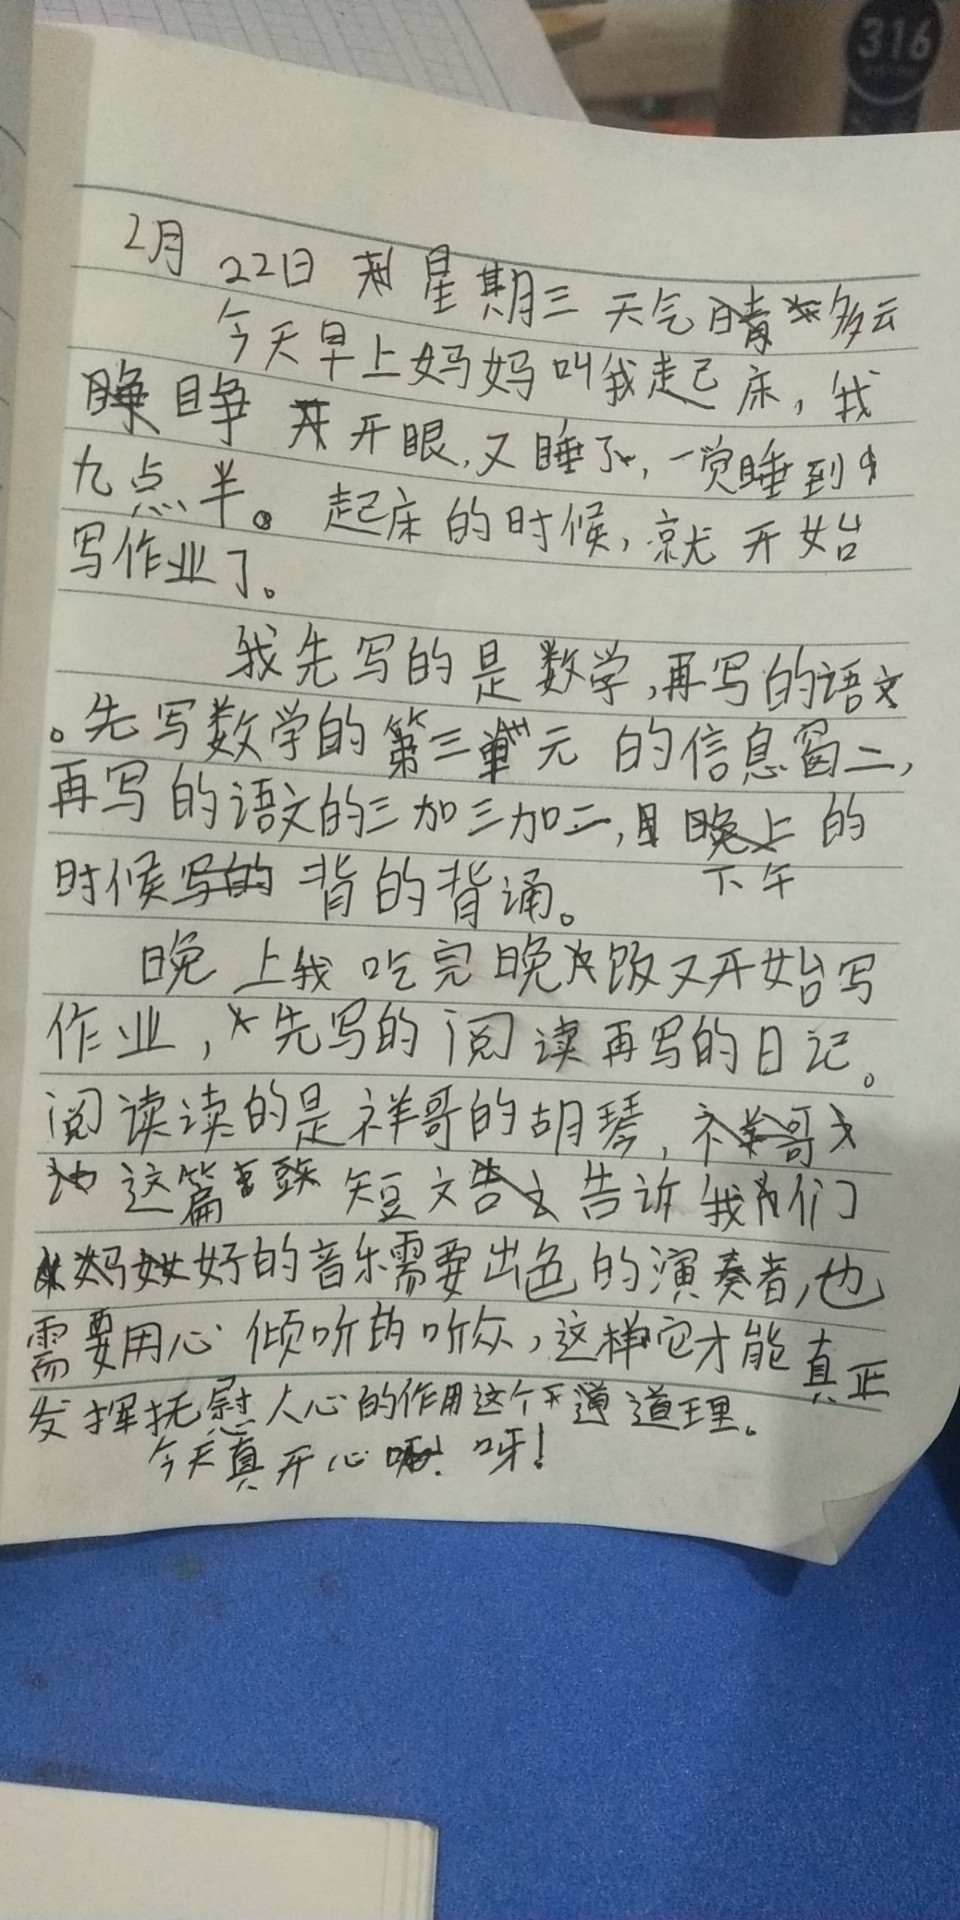 316
2月 22日 星期三 天气晴 多云
今天早上妈妈叫我起床，我
睁 开眼，又睡了，一觉睡到
九点半。起床的时候，就开始
写作业了。
我先写的是数学，再写的语文
。先写数学的第三单元的信息窗二，
再写的语文的三加三加二，晚上的
下午
时候写的背的背诵。
晚上我吃完晚饭又开始写
作业，先写的阅读再写的日记。
阅读读的是祥哥的胡琴，祥哥
这篇 短文告 告诉我们
好的音乐需要出色的演奏者，也
需要用心倾听的听众，这样它才能真正
发挥抚慰人心的作用这个道理。
今天真开心 呀！